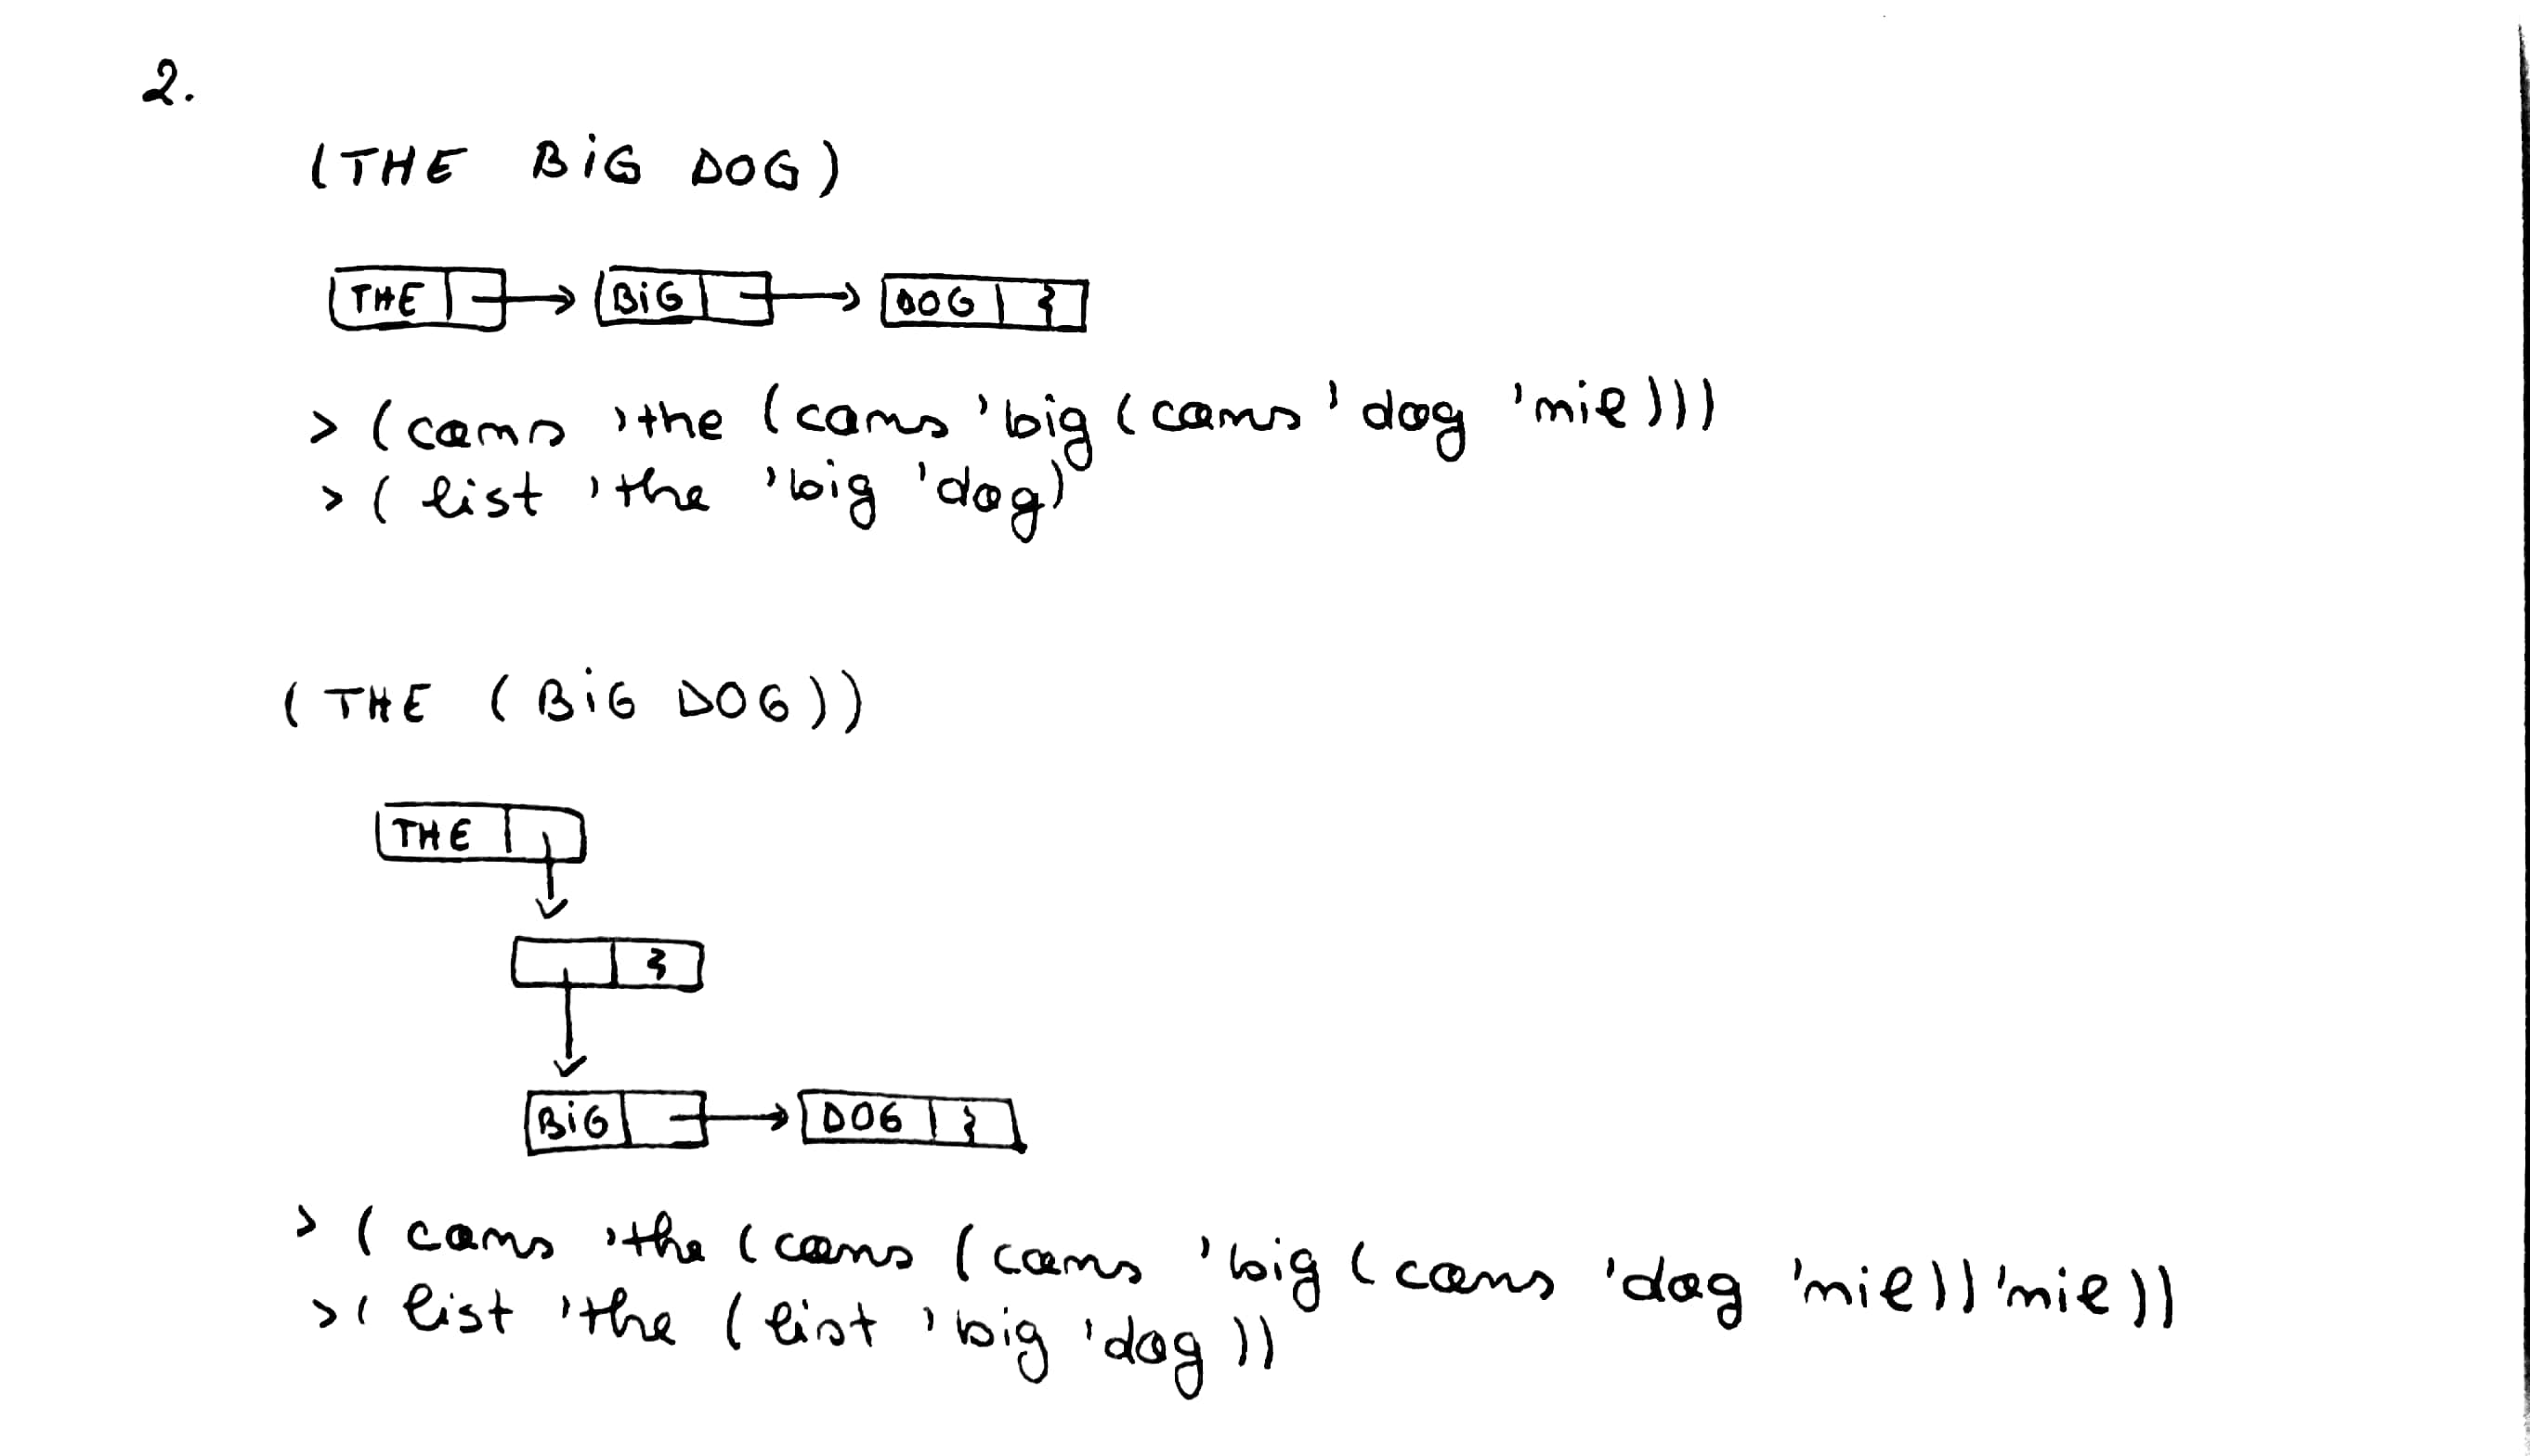 2.
(THE BiG DOG)
THE BiG DOG
> (cons 'the (cons 'big (cons 'dog 'nil)))
> (list 'the 'big 'dog)
(THE (BiG DOG))
THE
BiG DOG
> (cons 'the (cons (cons 'big (cons 'dog 'nil)) 'nil))
> (list 'the (list 'big 'dog))